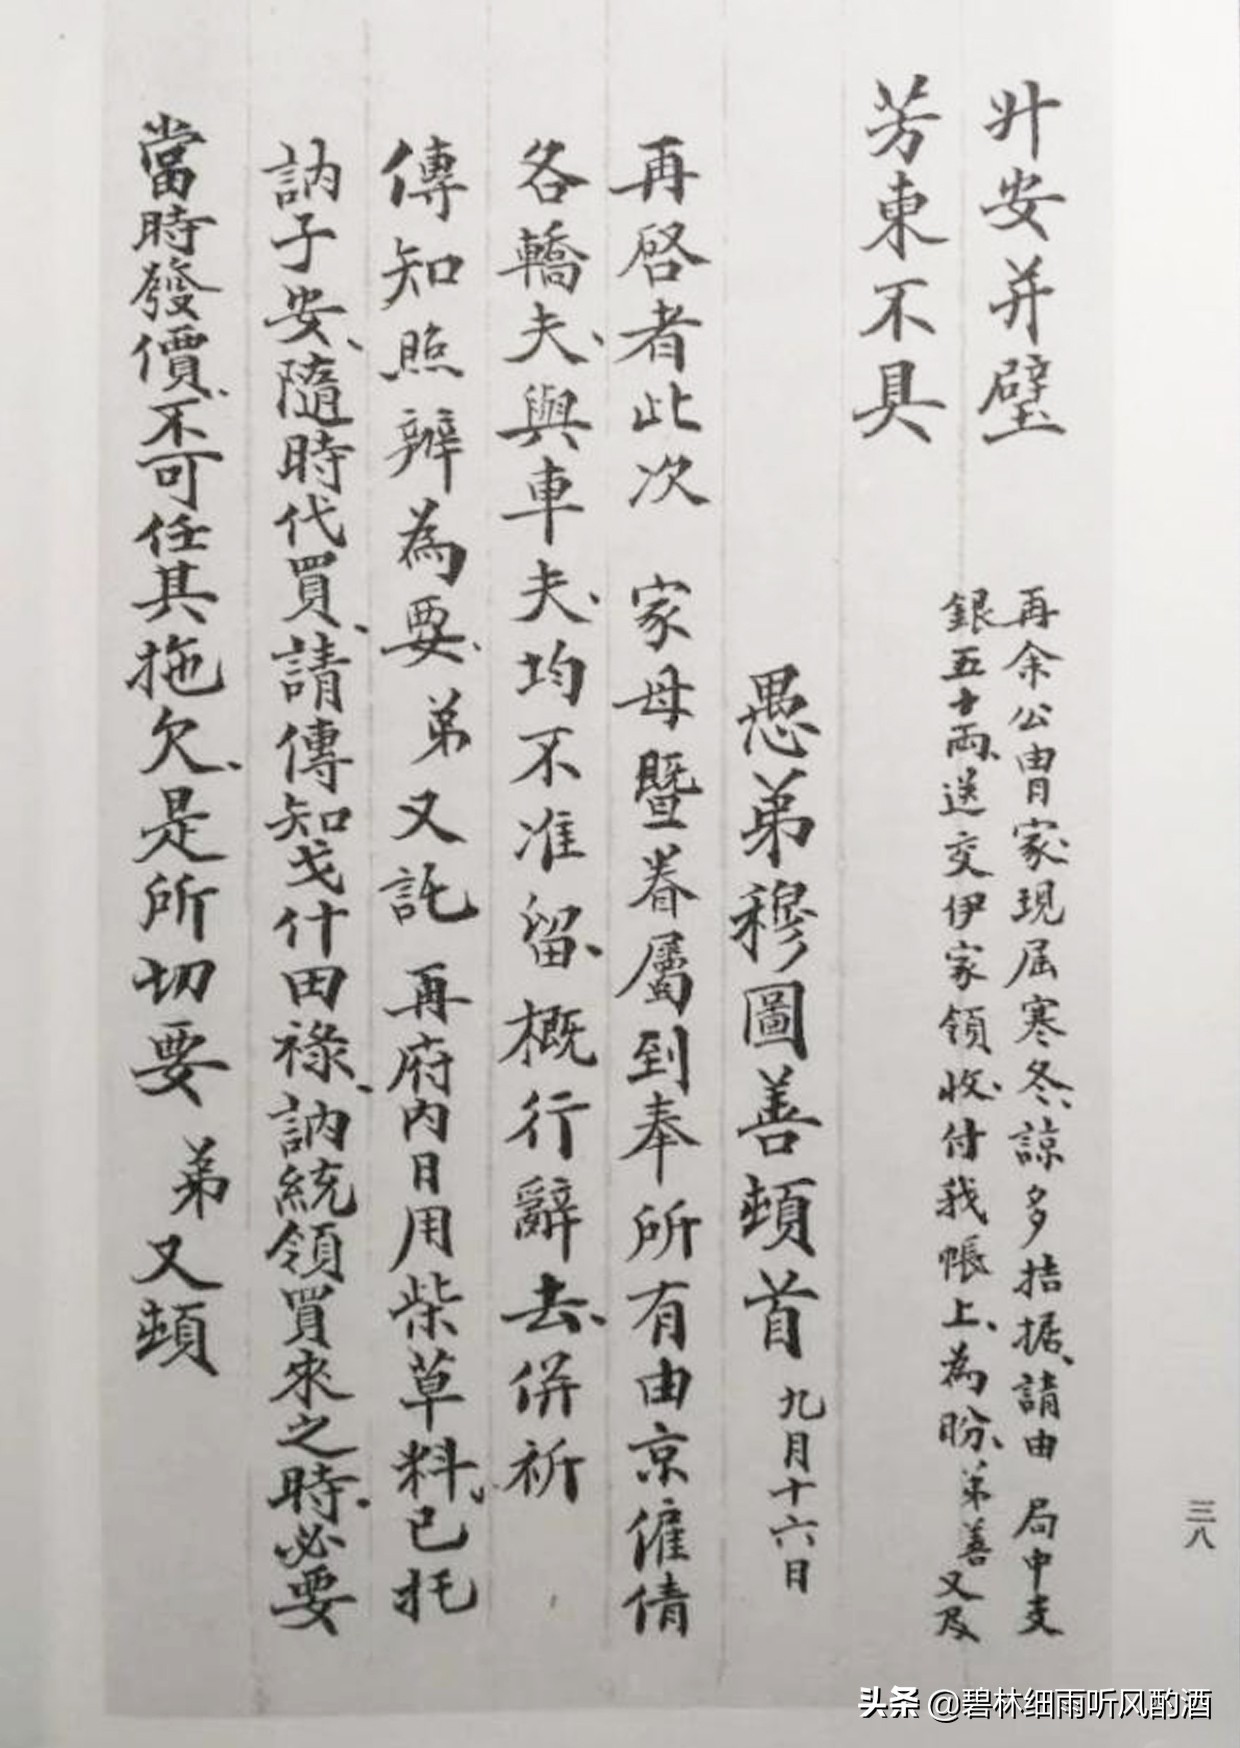 升安并璧
芳東不具
再余公胄家現届寒冬諒多拮据請由 局中支
銀五十兩送交伊家領收付我帳上為盼弟善又及
愚弟穆圖善頓首 九月十六日
再啓者此次 家母暨眷屬到奉所有由京僱倩
各轎夫與車夫均不准留概行辭去併祈
傳知照辦為要弟又託 再府内日用柴草料已托
訥子安隨時代買請傳知戈什田祿訥統領買來之時必要
當時發價不可任其拖欠是所切要 弟又頓
三八
头条 @碧林细雨听风酌酒